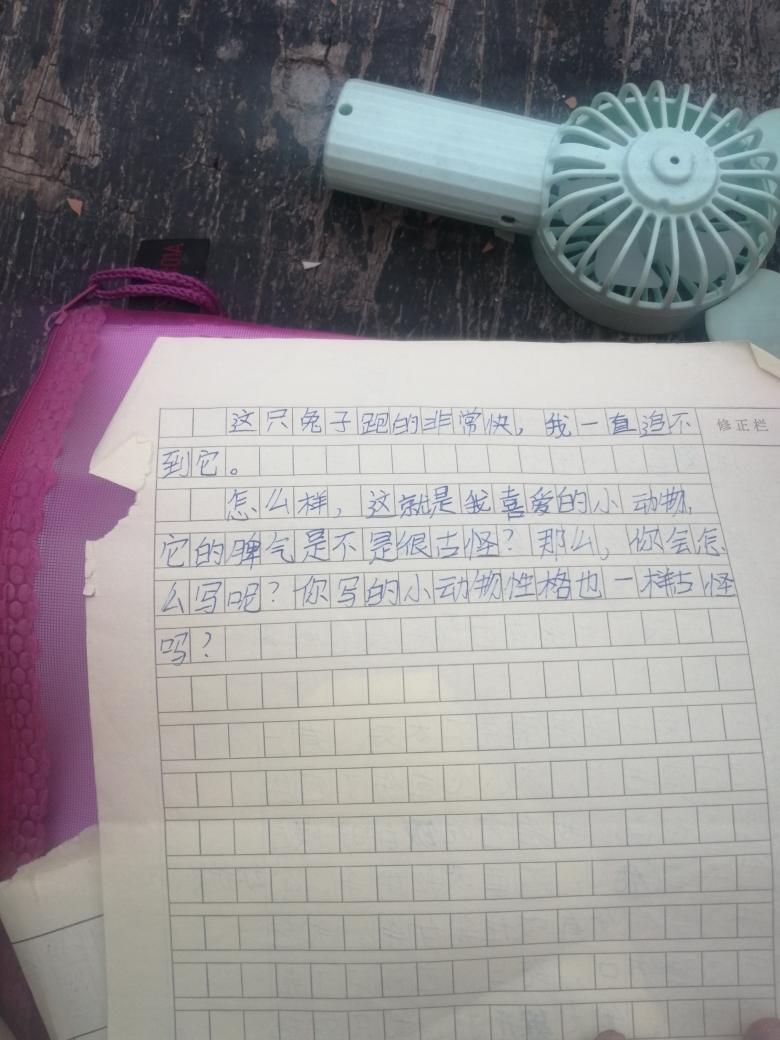 这只兔子跑的非常快，我一直追不
修正栏
到它。
怎么样，这就是我喜爱的小动物，
它的脾气是不是很古怪？那么，你会怎
么写呢？你写的小动物性格也一样古怪
吗？